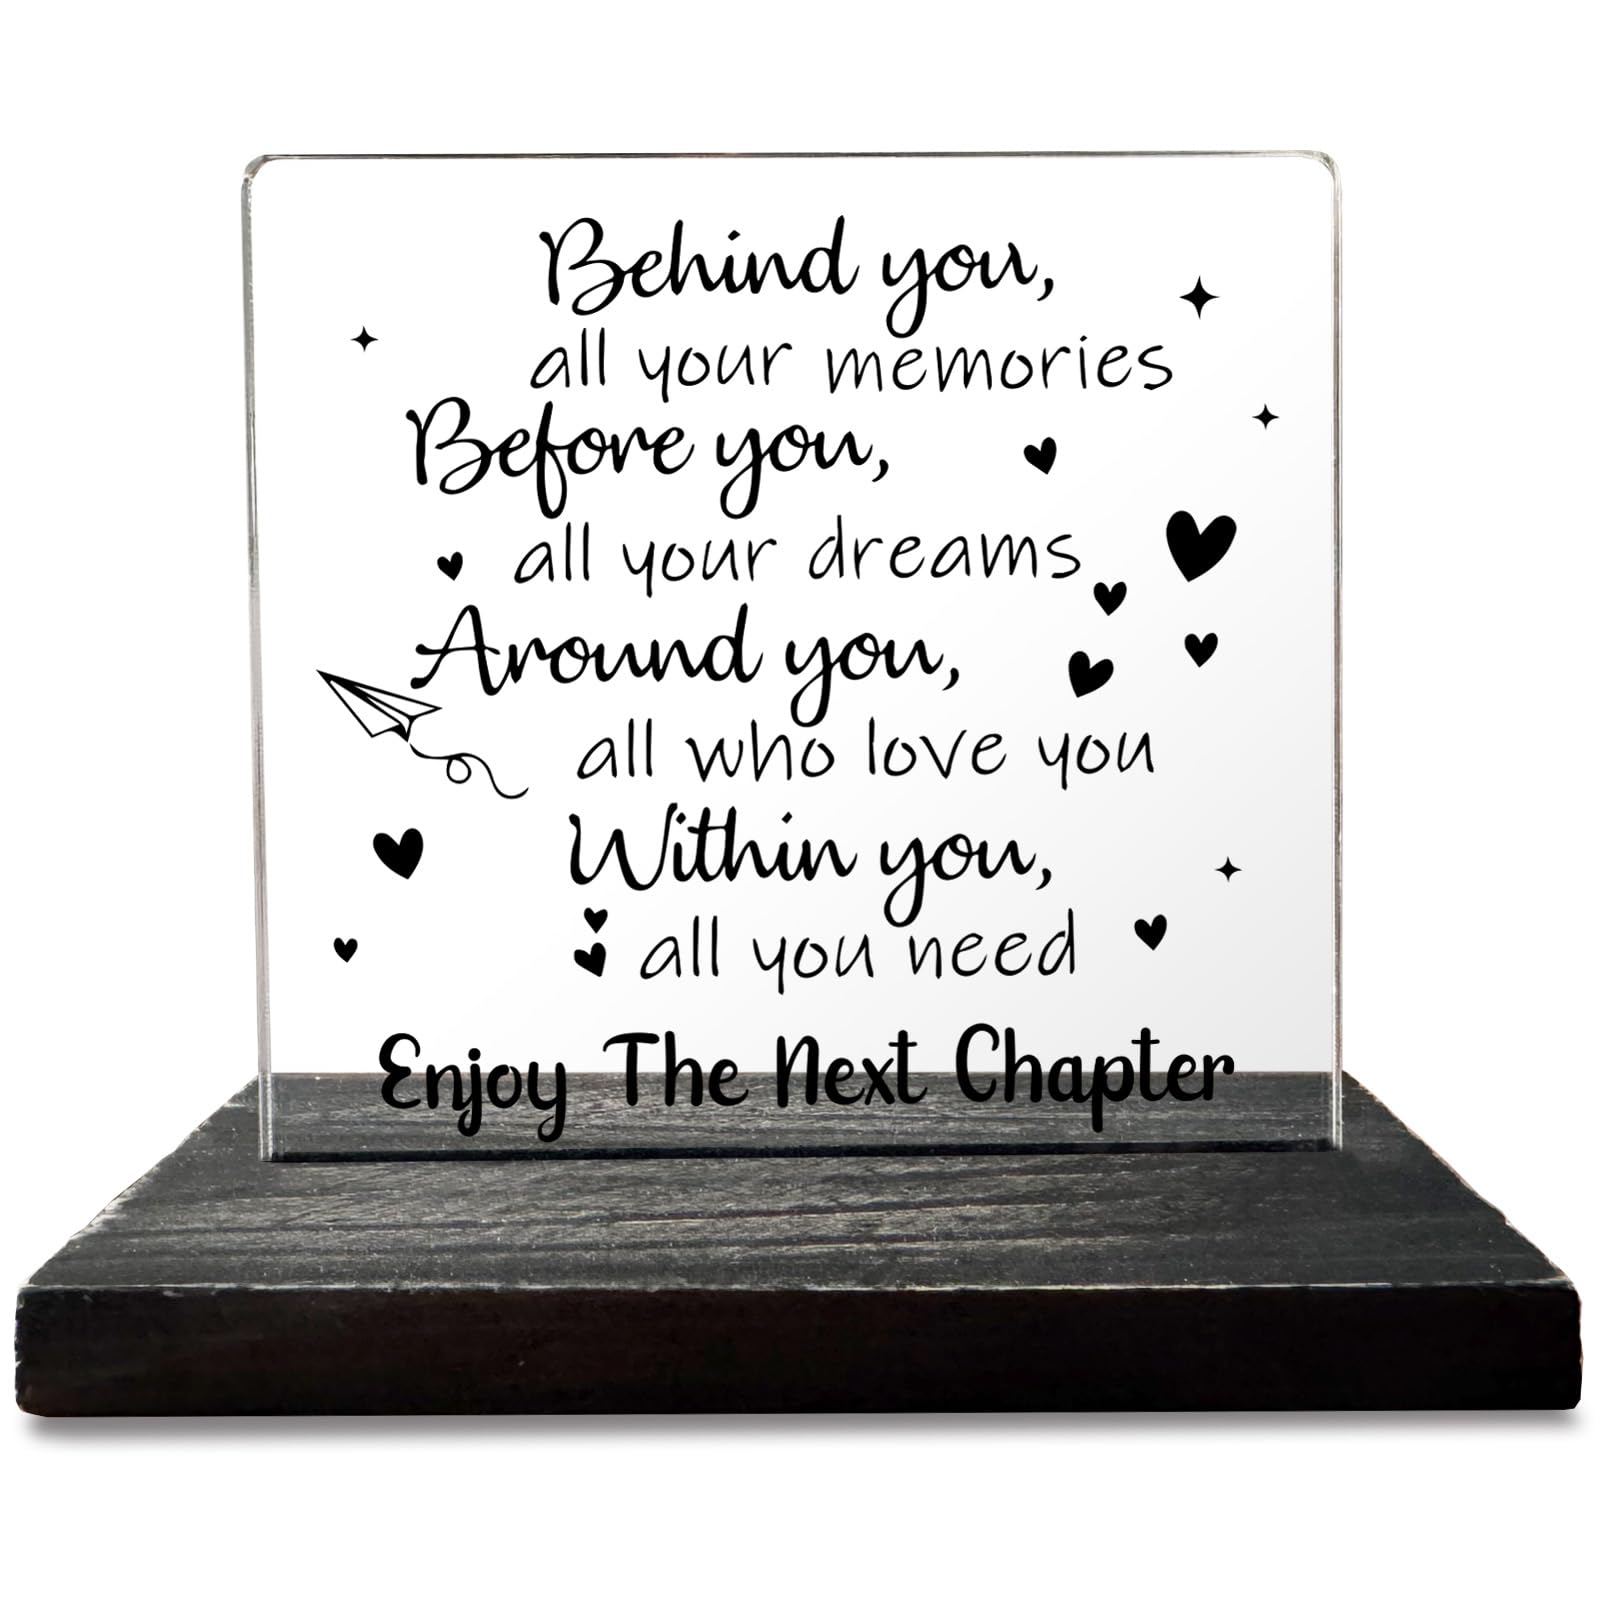 Behind you,
all your memories
Before you,
all your dreams
Around you,
all who love you
Within you,
all you need
Enjoy The Next Chapter